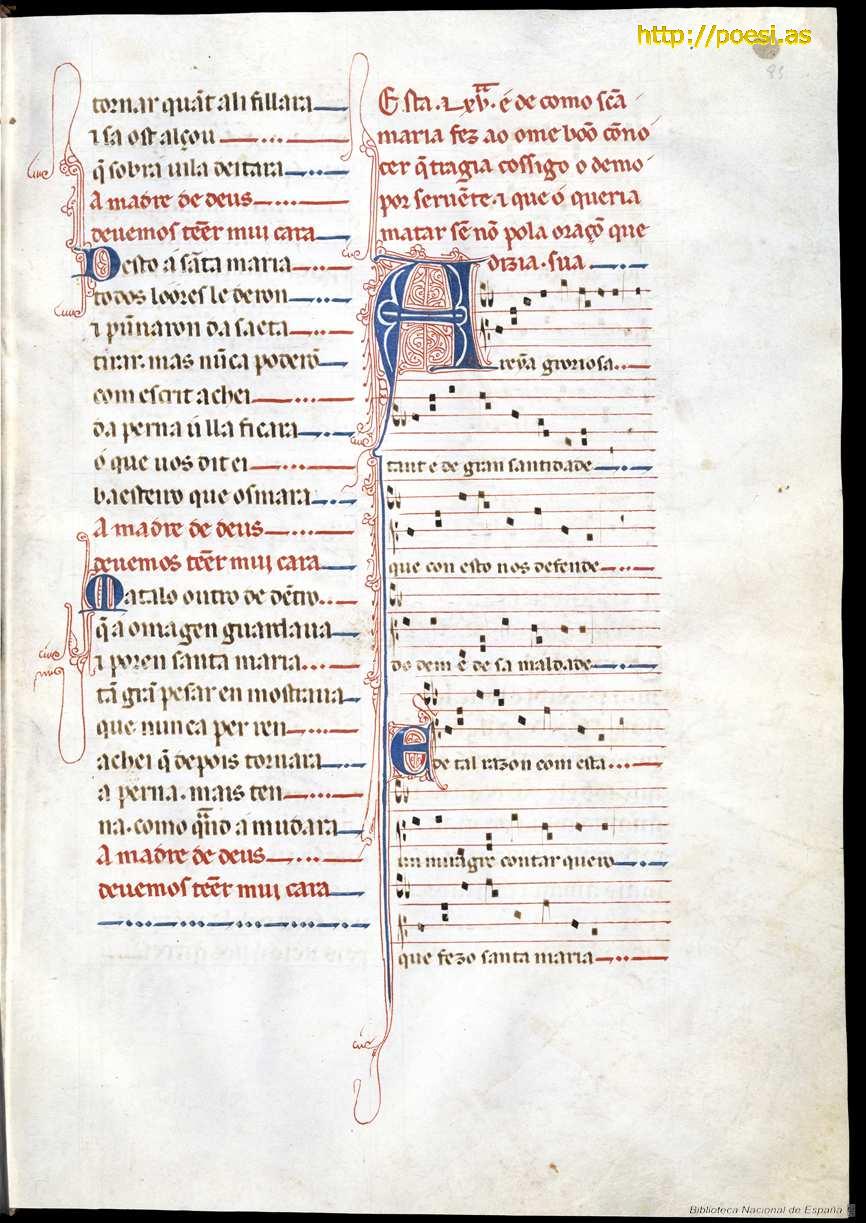 http://poesi.as
tornar quãt ali fillara
⁊ sa ost alçou
q̃ sobra uila deitara
A madre de deus
deuemos tẽer mui cara
Desto a sãta maria
todos loores le deron
⁊ pũnaron da saeta
tirar. mas nũca poderõ
com escrit achei
da perna u lla ficara
o que uos dit ei
baesteiro que osmara
A madre de deus
deuemos tẽer mui cara
Matalo outro de dẽtro
q̃ a omagen guardaua
⁊ poren santa maria
tã grã pesar en mostraua
que nunca per ren
achei q̃ depois tornara
a perna. mais ten
na. como quãdo a mudara
A madre de deus
deuemos tẽer mui cara
Esta .Lxv. é de como scã
maria fez ao ome bõo cõno
cer q̃ tragia cossigo o demo
por seruẽte. ⁊ que o queria
matar sẽ nõ pola oraçõ que
dizia. sua
A reỹa groriosa
tant é de gran santidade
que con esto nos defende
do dem e de sa maldade
E de tal razon com esta
un miragre contar quero
que fezo santa maria
Biblioteca Nacional de España